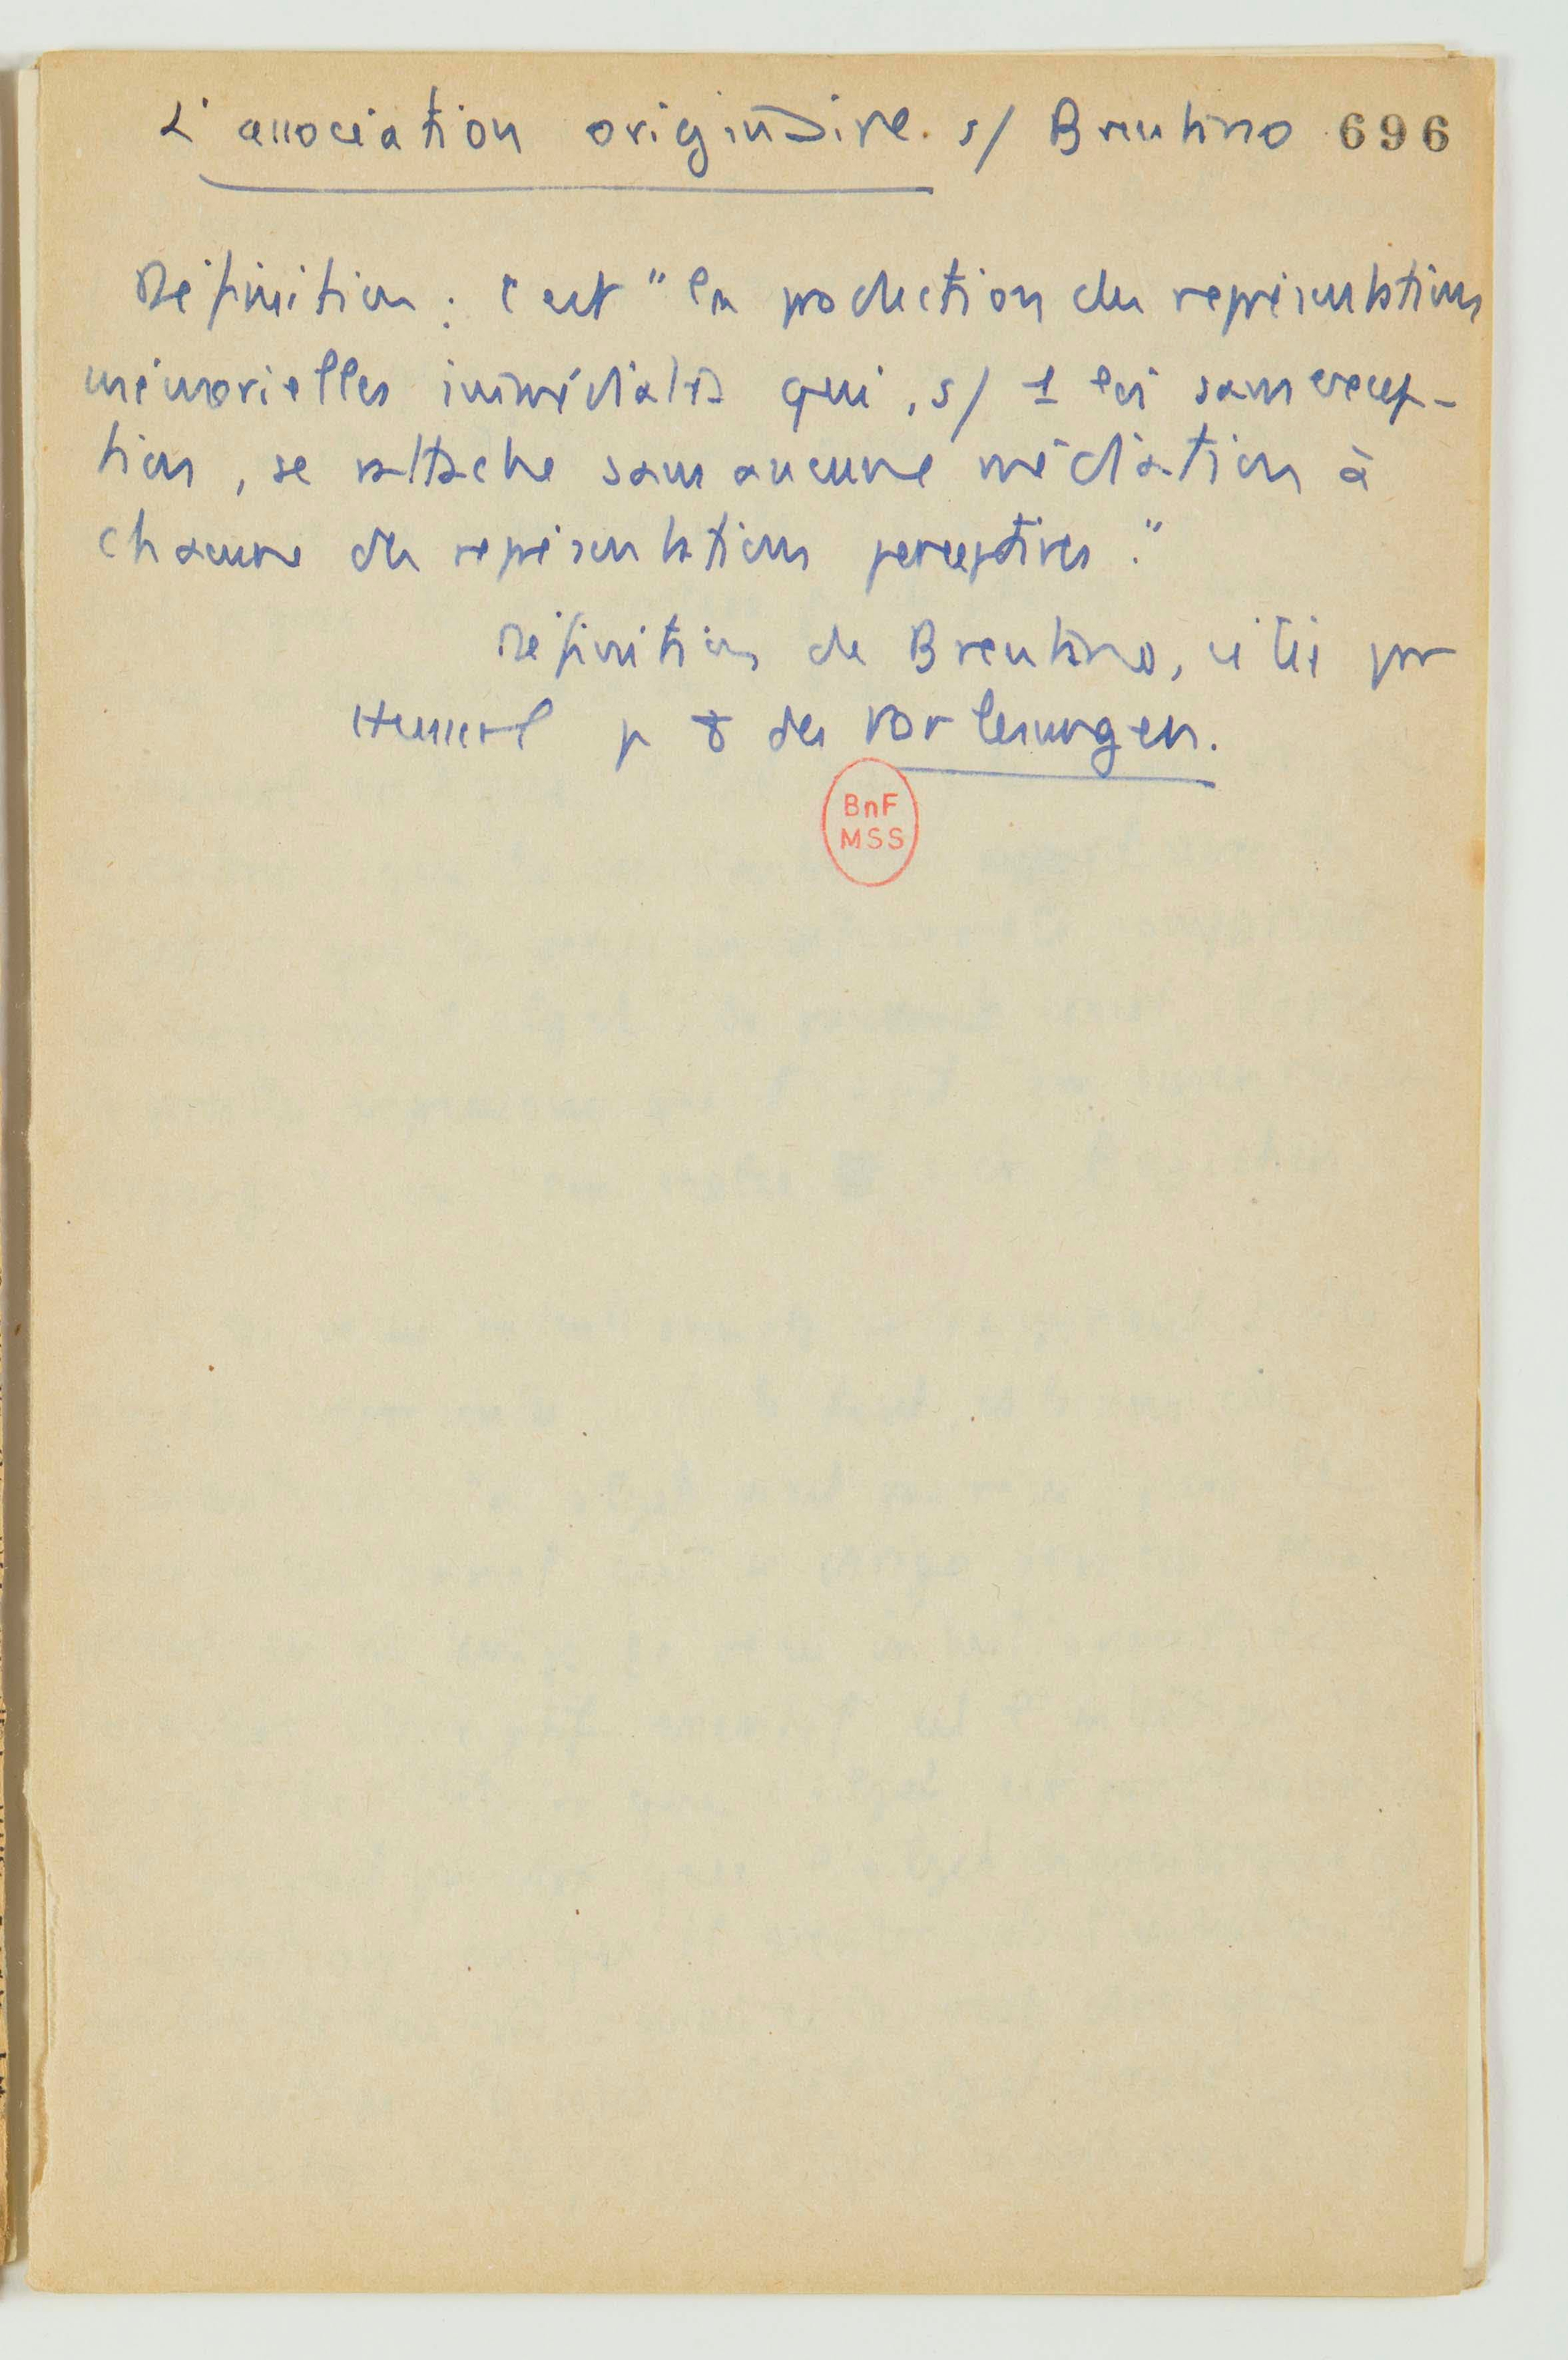 L'association originaire. s/ Brentano 696
Définition : c'est "la production des représentations
mémorielles immédiates qui, s/ 1 loi sans excep-
tion, se rattache sans aucune médiation à
chacune des représentations perceptives."
Définition de Brentano, citée par
Husserl p des Vorlesungen.
BnF
MSS